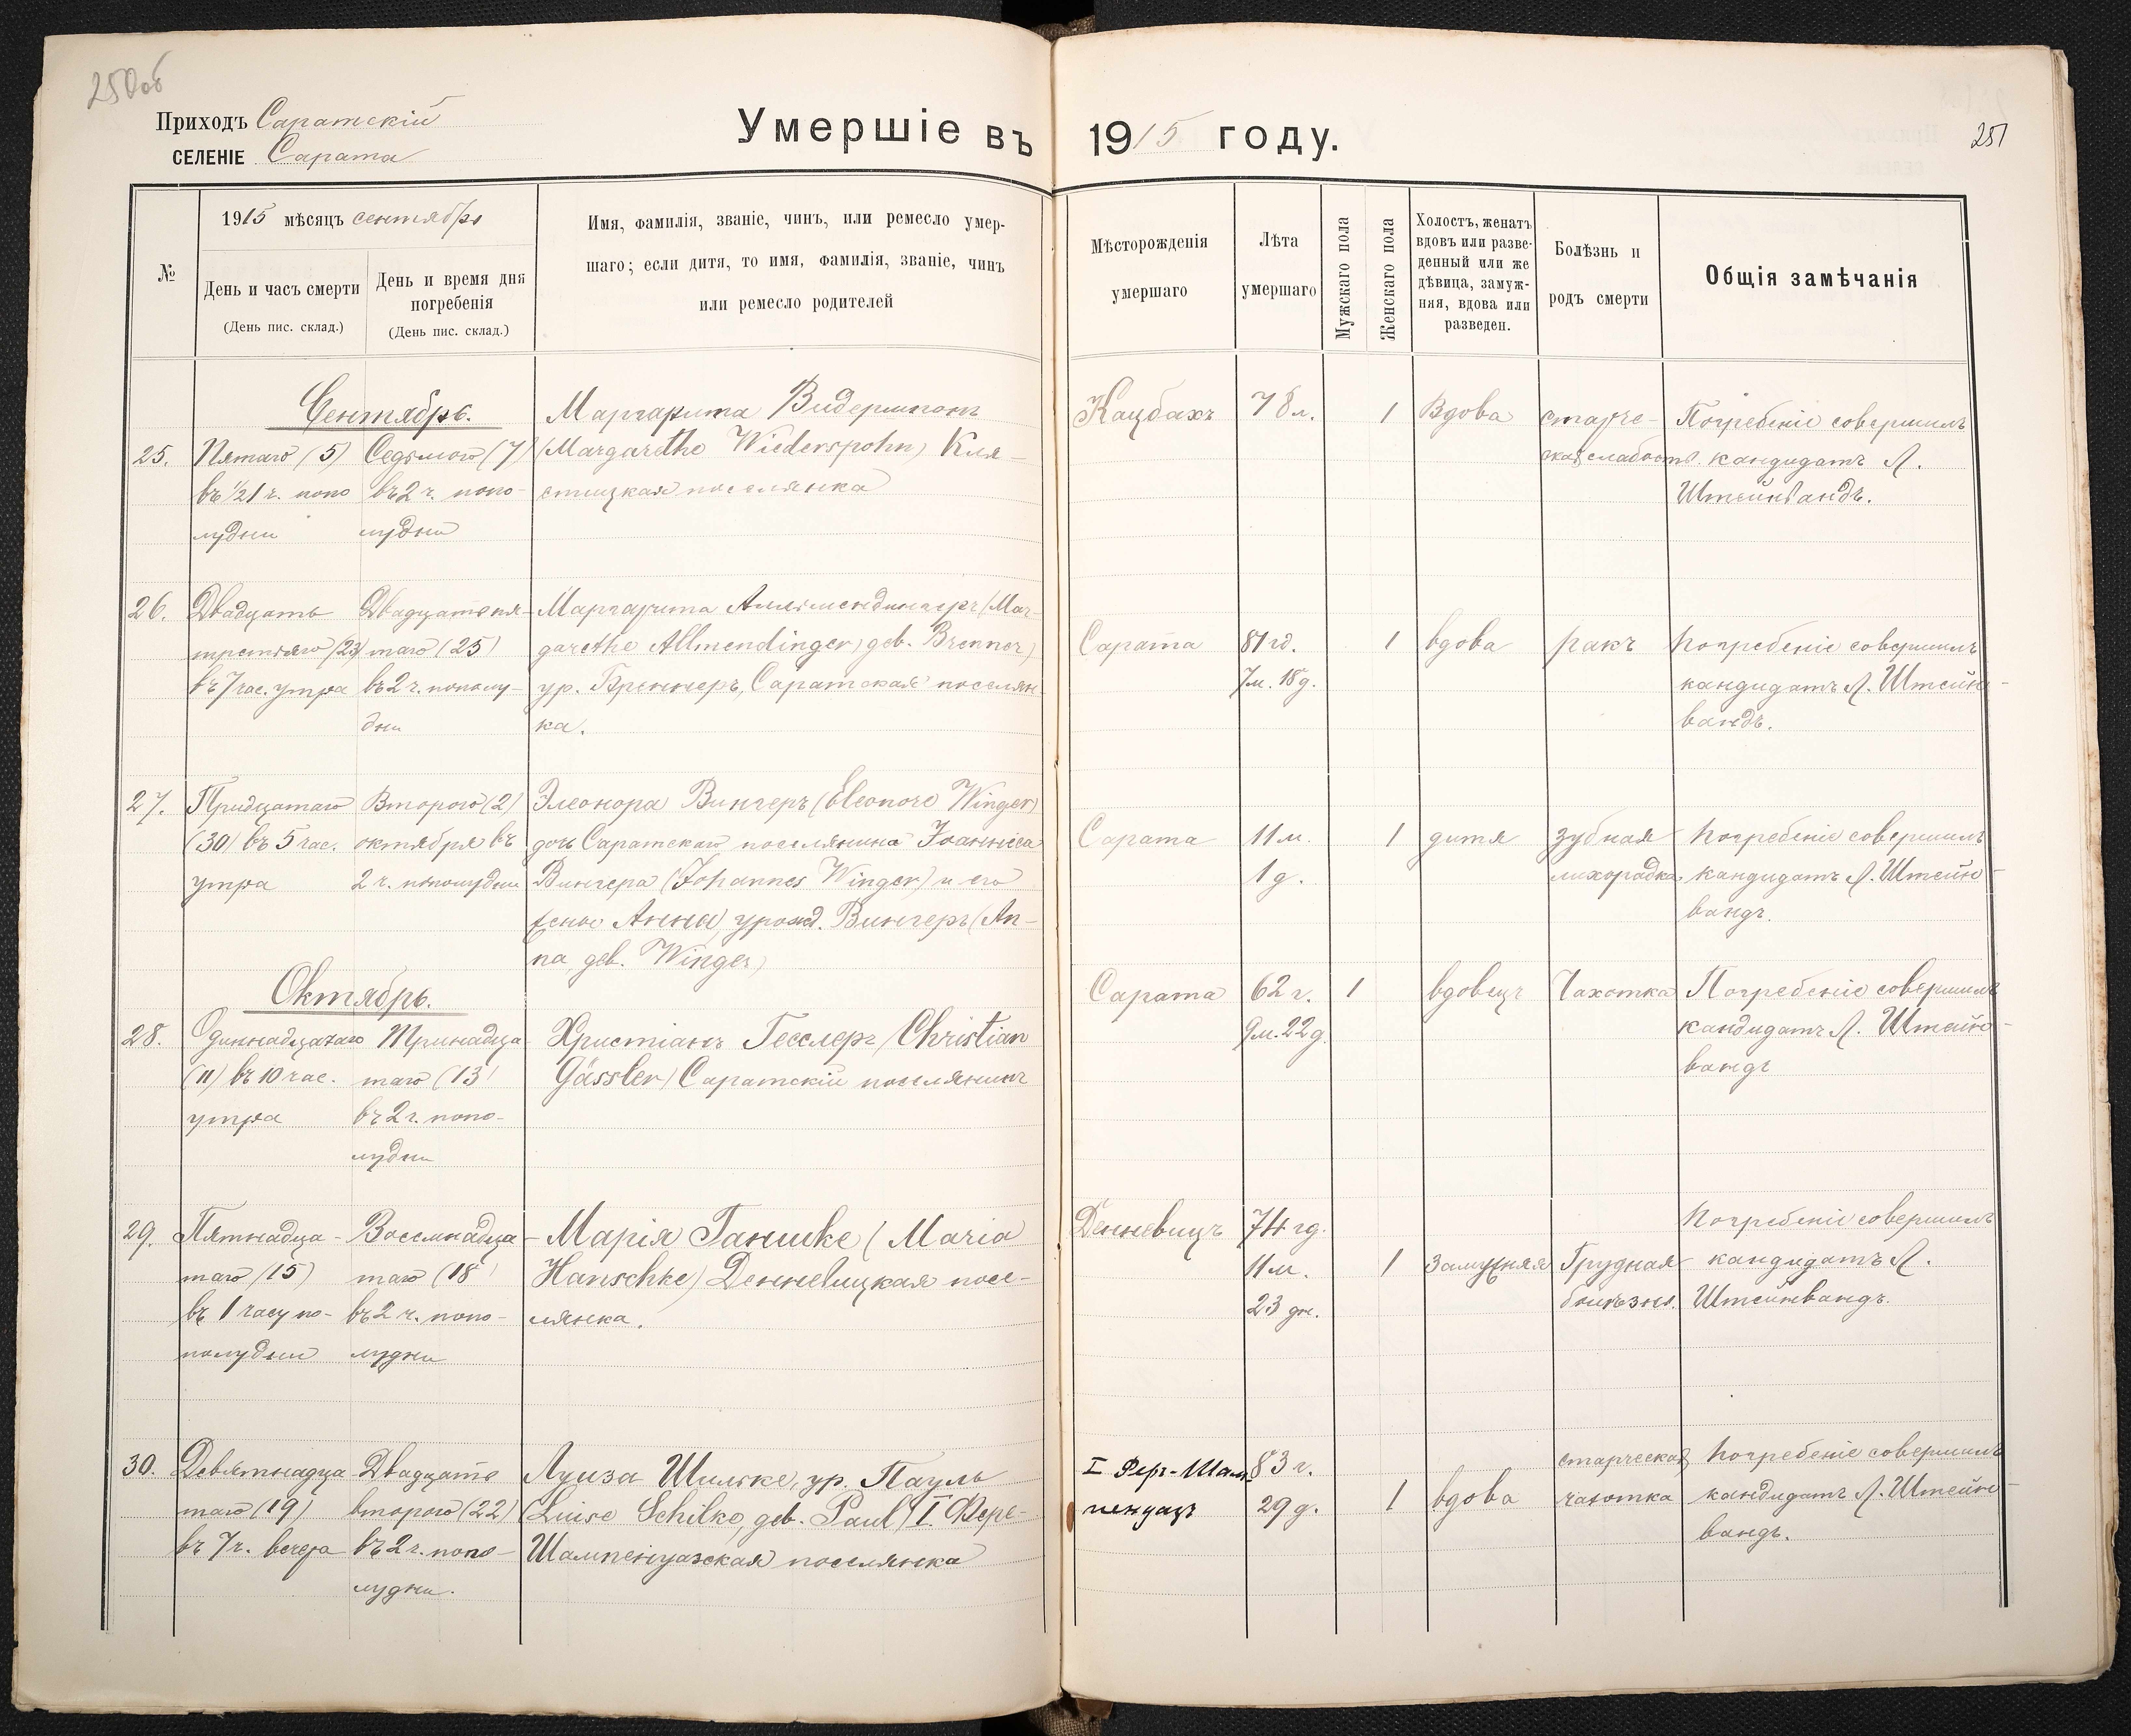 250об
Приходъ Саратскій
СЕЛЕНІЕ Сарата
Умершіе въ 1915 году.
251
№
1915 мѣсяцъ сентябрь
День и часъ смерти
(День пис. склад.)
День и время дня
погребенія
(День пис. склад.)
Имя, фамилія, званіе, чинъ, или ремесло умер-
шаго; если дитя, то имя, фамилія, званіе, чинъ
или ремесло родителей
Мѣсторожденія
умершаго
Лѣта
умершаго
Мужскаго пола
Женскаго пола
Холостъ, женатъ
вдовъ или разве-
денный или же
дѣвица, замуж-
няя, вдова или
разведен.
Болѣзнь и
родъ смерти
Общія замѣчанія
Сентябрь.
25.
Пятаго (5)
въ ½1 ч. попо
лудни
Седьмого (7)
въ 2 ч. попо-
лудни
Маргарита Видершпонъ
(Margarethe Wiederspohn) Кля-
стицкая поселянка
Кацбахъ
78 л.
1
Вдова
старче-
ская слабость.
Погребеніе совершилъ
кандидатъ Я.
Штейнвандъ.
26.
Двадцать
третьяго (23)
въ 7 час. утра
Двадцать пя-
таго (25)
въ 2 ч. пополу-
дни
Маргарита Алльмендингеръ (Mar-
garethe Allmendinger) geb. Brenner)
ур. Бреннеръ, Саратская поселян-
ка.
Сарата
81 гд.
7 м. 18 д.
1
вдова
ракъ
Погребеніе совершилъ
кандидатъ Я. Штейн-
вандъ.
27.
Тридцатаго
(30) въ 5 час.
утра
Второго (2)
октября въ
2 ч. пополудни
Элеонора Вингеръ (Eleonore Winger)
дочь Саратскаго поселянина Іоаннеса
Вингера (Johannes Winger) и его
жены Анна, урожд. Вингеръ (An-
na geb. Winger)
Сарата
11 м.
1 д.
1
дитя
зубная
лихорадка
Погребеніе совершилъ
кандидатъ Я. Штейн-
вандъ.
Октябрь.
28.
Одиннадцатаго
(11) въ 10 час.
утра
Тринадца
таго (13)
въ 2 ч. попо-
лудни
Христіанъ Гесслеръ (Christian
Gässler) Саратскій поселянинъ
Сарата
62 г.
9 м. 22 д.
1
вдовецъ
Чахотка
Погребеніе совершилъ
кандидатъ Я. Штейн-
вандъ
29.
Пятнадца-
таго (15)
въ 1 часу по-
полудни
Восемнадца-
таго (18)
въ 2 ч. попо-
лудни
Марія Ганшке (Maria
Hanschke) Денневицкая посе-
лянка.
Денневицъ
74 гд.
11 м.
23 дн.
1
Замужняя
Грудная
болѣзнь.
Погребеніе совершилъ
кандидатъ Я.
Штейнвандъ.
30.
Девятнадца
таго (19)
въ 7 ч. вечера
Двадцать
второго (22)
въ 2 ч. попо-
лудни.
Луиза Шильке, ур. Пауль
(Luise Schilke, geb. Paul) I. Фере-
Шампенуазская поселянка
I Фер-Шам
пенуазъ
83 г.
29 д.
1
вдова
старческая
чахотка
Погребеніе совершилъ
кандидатъ Я. Штейн-
вандъ.